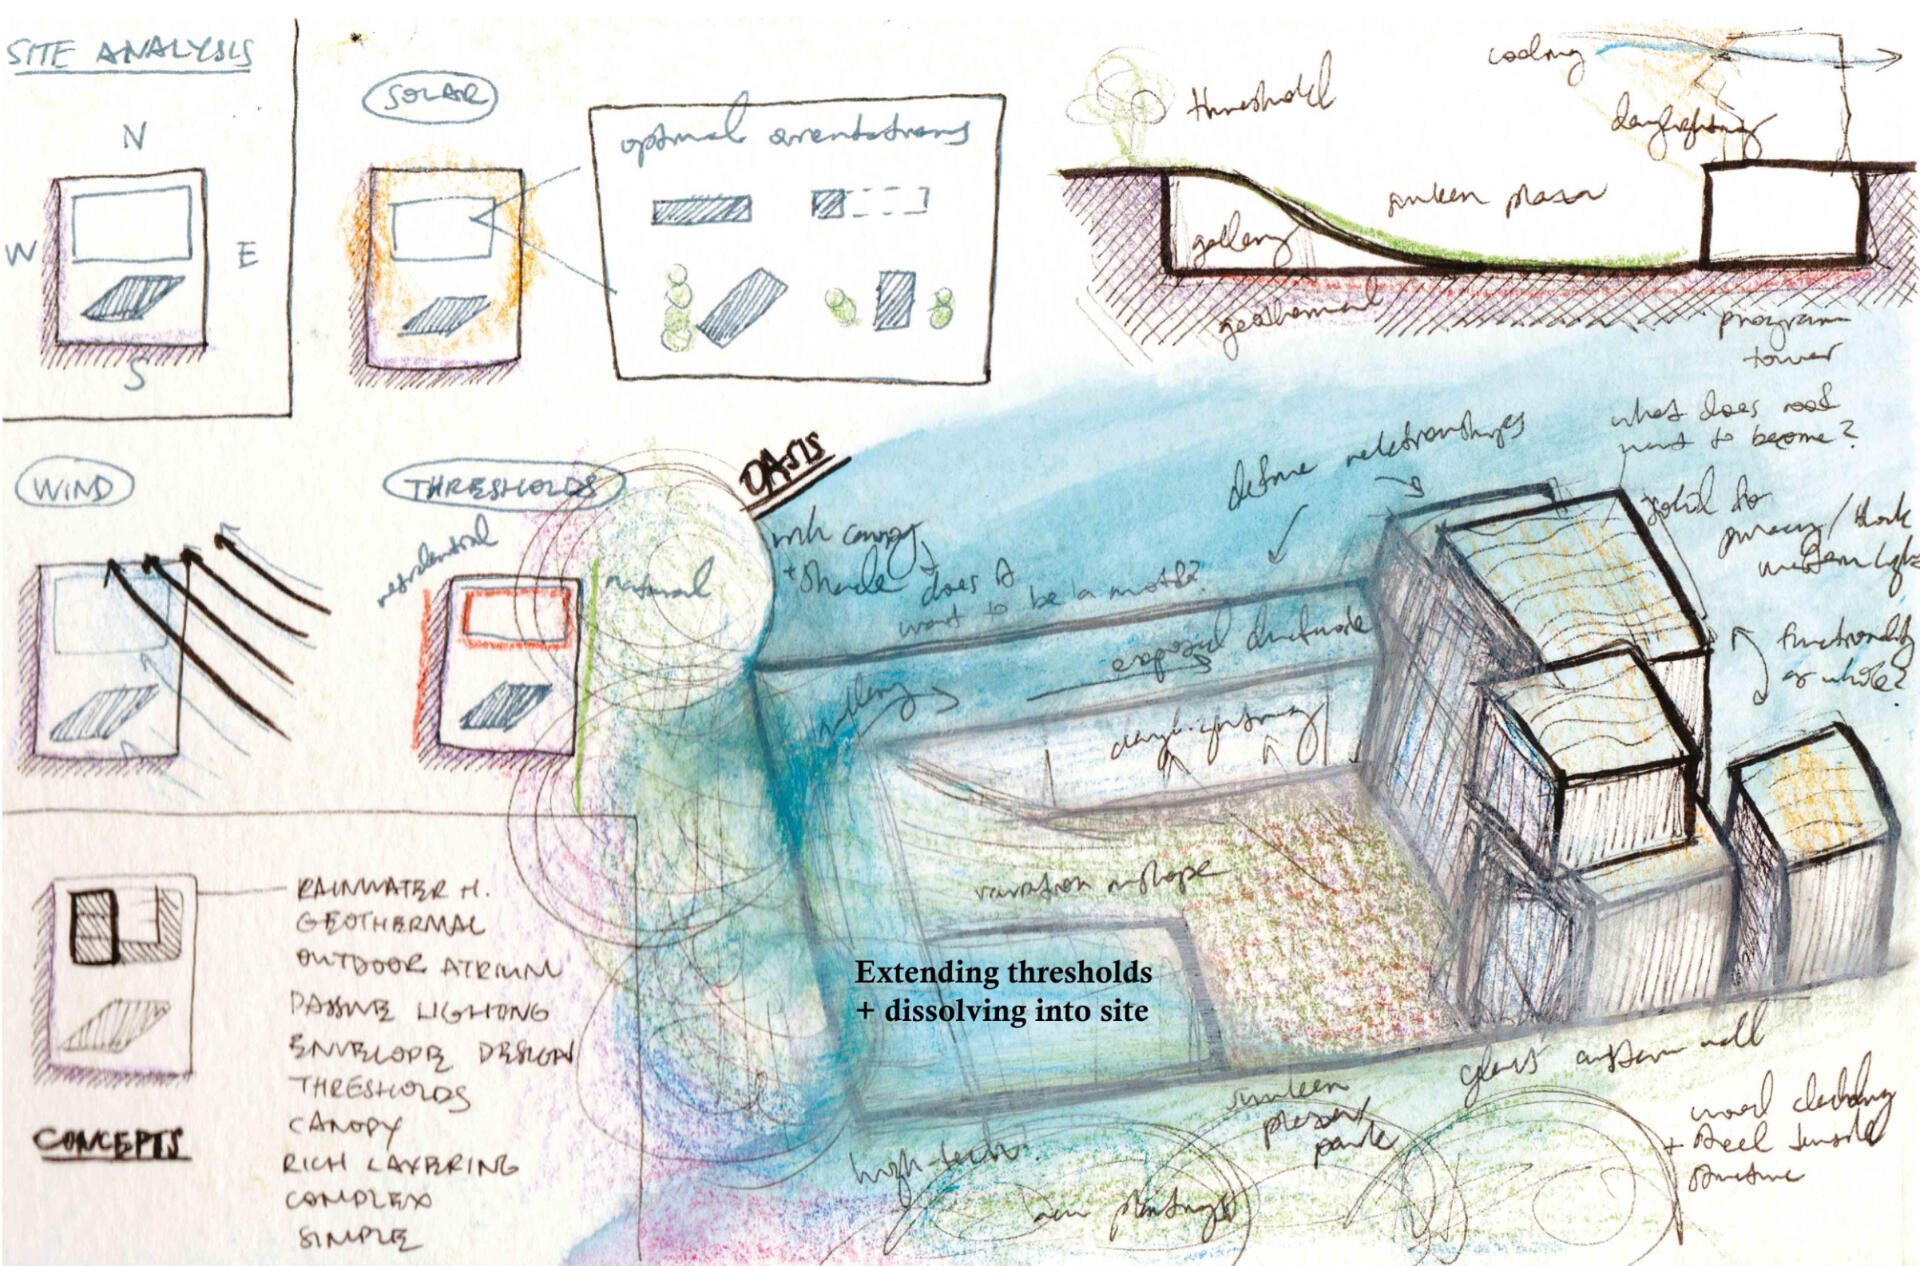 SITE ANALYSIS
N
W
E
S
SOLAR
optimal orientations
threshold
cooling
daylighting
sunken plaza
gallery
geothermal
program
tower
WIND
THRESHOLDS
residential
natural
OASIS
with canopy
+ shade
does it
want to be a
define relationships
what does roof
want to become?
solid for
privacy/block
western light
functionality
as whole?
exposed ductwork
gallery
daylighting
variation in slope
Extending thresholds
+ dissolving into site
RAINWATER H.
GEOTHERMAL
OUTDOOR ATRIUM
PASSIVE LIGHTING
ENVELOPE DESIGN
THRESHOLDS
CANOPY
RICH LAYERING
COMPLEX
SIMPLE
CONCEPTS
high-tech
sunken
plaza/
park
glass curtain wall
wood cladding
+ steel
structure
new plantings